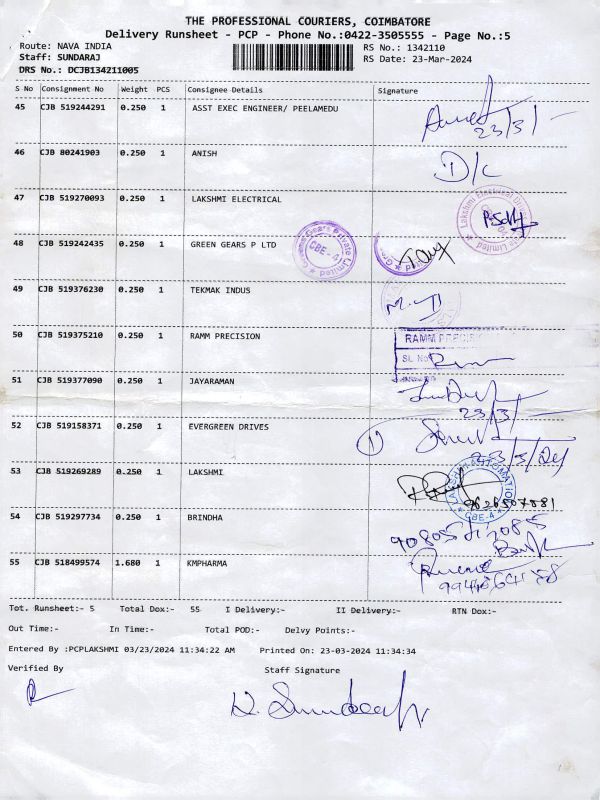 THE PROFESSIONAL COURIERS, COIMBATORE
Delivery Runsheet - PCP - Phone No.:0422-3505555 - Page No.:5
Route: NAVA INDIA RS No.: 1342110
Staff: SUNDARAJ RS Date: 23-Mar-2024
DRS No.: DCJB134211005
S No Consignment No Weight PCS Consignee Details Signature
45 CJB 519244291 0.250 1 ASST EXEC ENGINEER/ PEELAMEDU
23/3/
46 CJB 80241903 0.250 1 ANISH D/C
47 CJB 519270093 0.250 1 LAKSHMI ELECTRICAL
48 CJB 519242435 0.250 1 GREEN GEARS P LTD
CBE - 4
49 CJB 519376230 0.250 1 TEKMAK INDUS
50 CJB 519375210 0.250 1 RAMM PRECISION
RAMM PRECISI
SL No
51 CJB 519377090 0.250 1 JAYARAMAN
23/3/
52 CJB 519158371 0.250 1 EVERGREEN DRIVES
23/3/24
53 CJB 519269289 0.250 1 LAKSHMI
AUTOMATION
CBE-4
54 CJB 519297734 0.250 1 BRINDHA
55 CJB 518499574 1.680 1 KMPHARMA
Tot. Runsheet:- 5 Total Dox:- 55 I Delivery:- II Delivery:- RTN Dox:-
Out Time:- In Time:- Total POD:- Delvy Points:-
Entered By :PCPLAKSHMI 03/23/2024 11:34:22 AM Printed On: 23-03-2024 11:34:34
Verified By Staff Signature